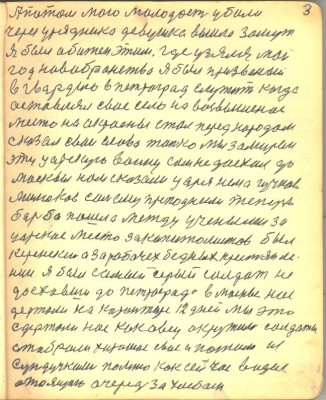 3
А потом мого молодость убили
через урядника девушка вышла замуж
Я был обижен этим. где узялся мой
год новобранства Я был призванный
в гвардию в петроград служить когда
оставлял свае село на возвышеное
место на окраены стал перед народом
сказал сваи слова только мы замирем
эту царскую войну сам не доехал до
москвы нам сказали царя нема
самому преподнили теперь
барба пошла между ученыеми за
царское место за копитолистов был
керенский а за робочех бедных крестьяне
Я был самый серый солдат не
доехавши до петрограда в москве нас
держали на карантине 12 дней мы это
здержали нас как овец окружили солдаты
забрали хорошае свае и погнали с
сундучками помню как сейчас видел
стоящую очередь за хлебом